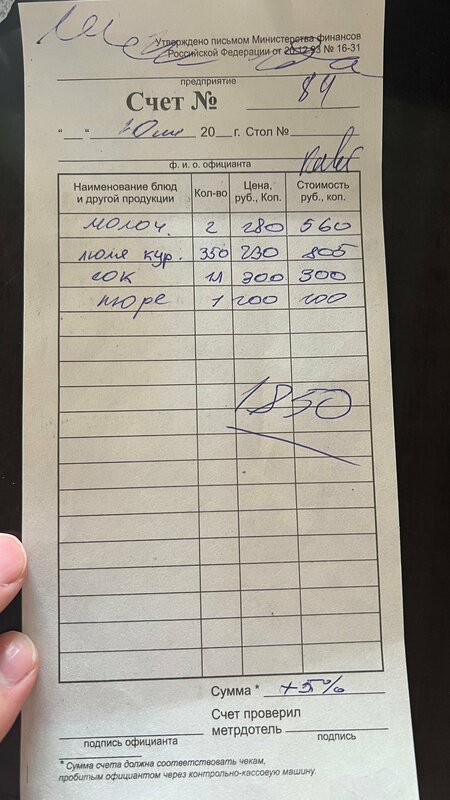 Утверждено письмом Министерства финансов
Российской Федерации от 20.12.93 № 16-31
предприятие
Счет № 84
"__" 20__ г. Стол №
ф. и. о. официанта
Наименование блюд и другой продукции Кол-во Цена, руб., Коп. Стоимость руб., коп.
молоч. 2 280 560
люля кур. 350 230 805
сок 1л 300 300
пюре 1 200 200
1850
Сумма * +5%
Счет проверил
метрдотель
подпись официанта подпись
* Сумма счета должна соответствовать чекам,
пробитым официантом через контрольно-кассовую машину.